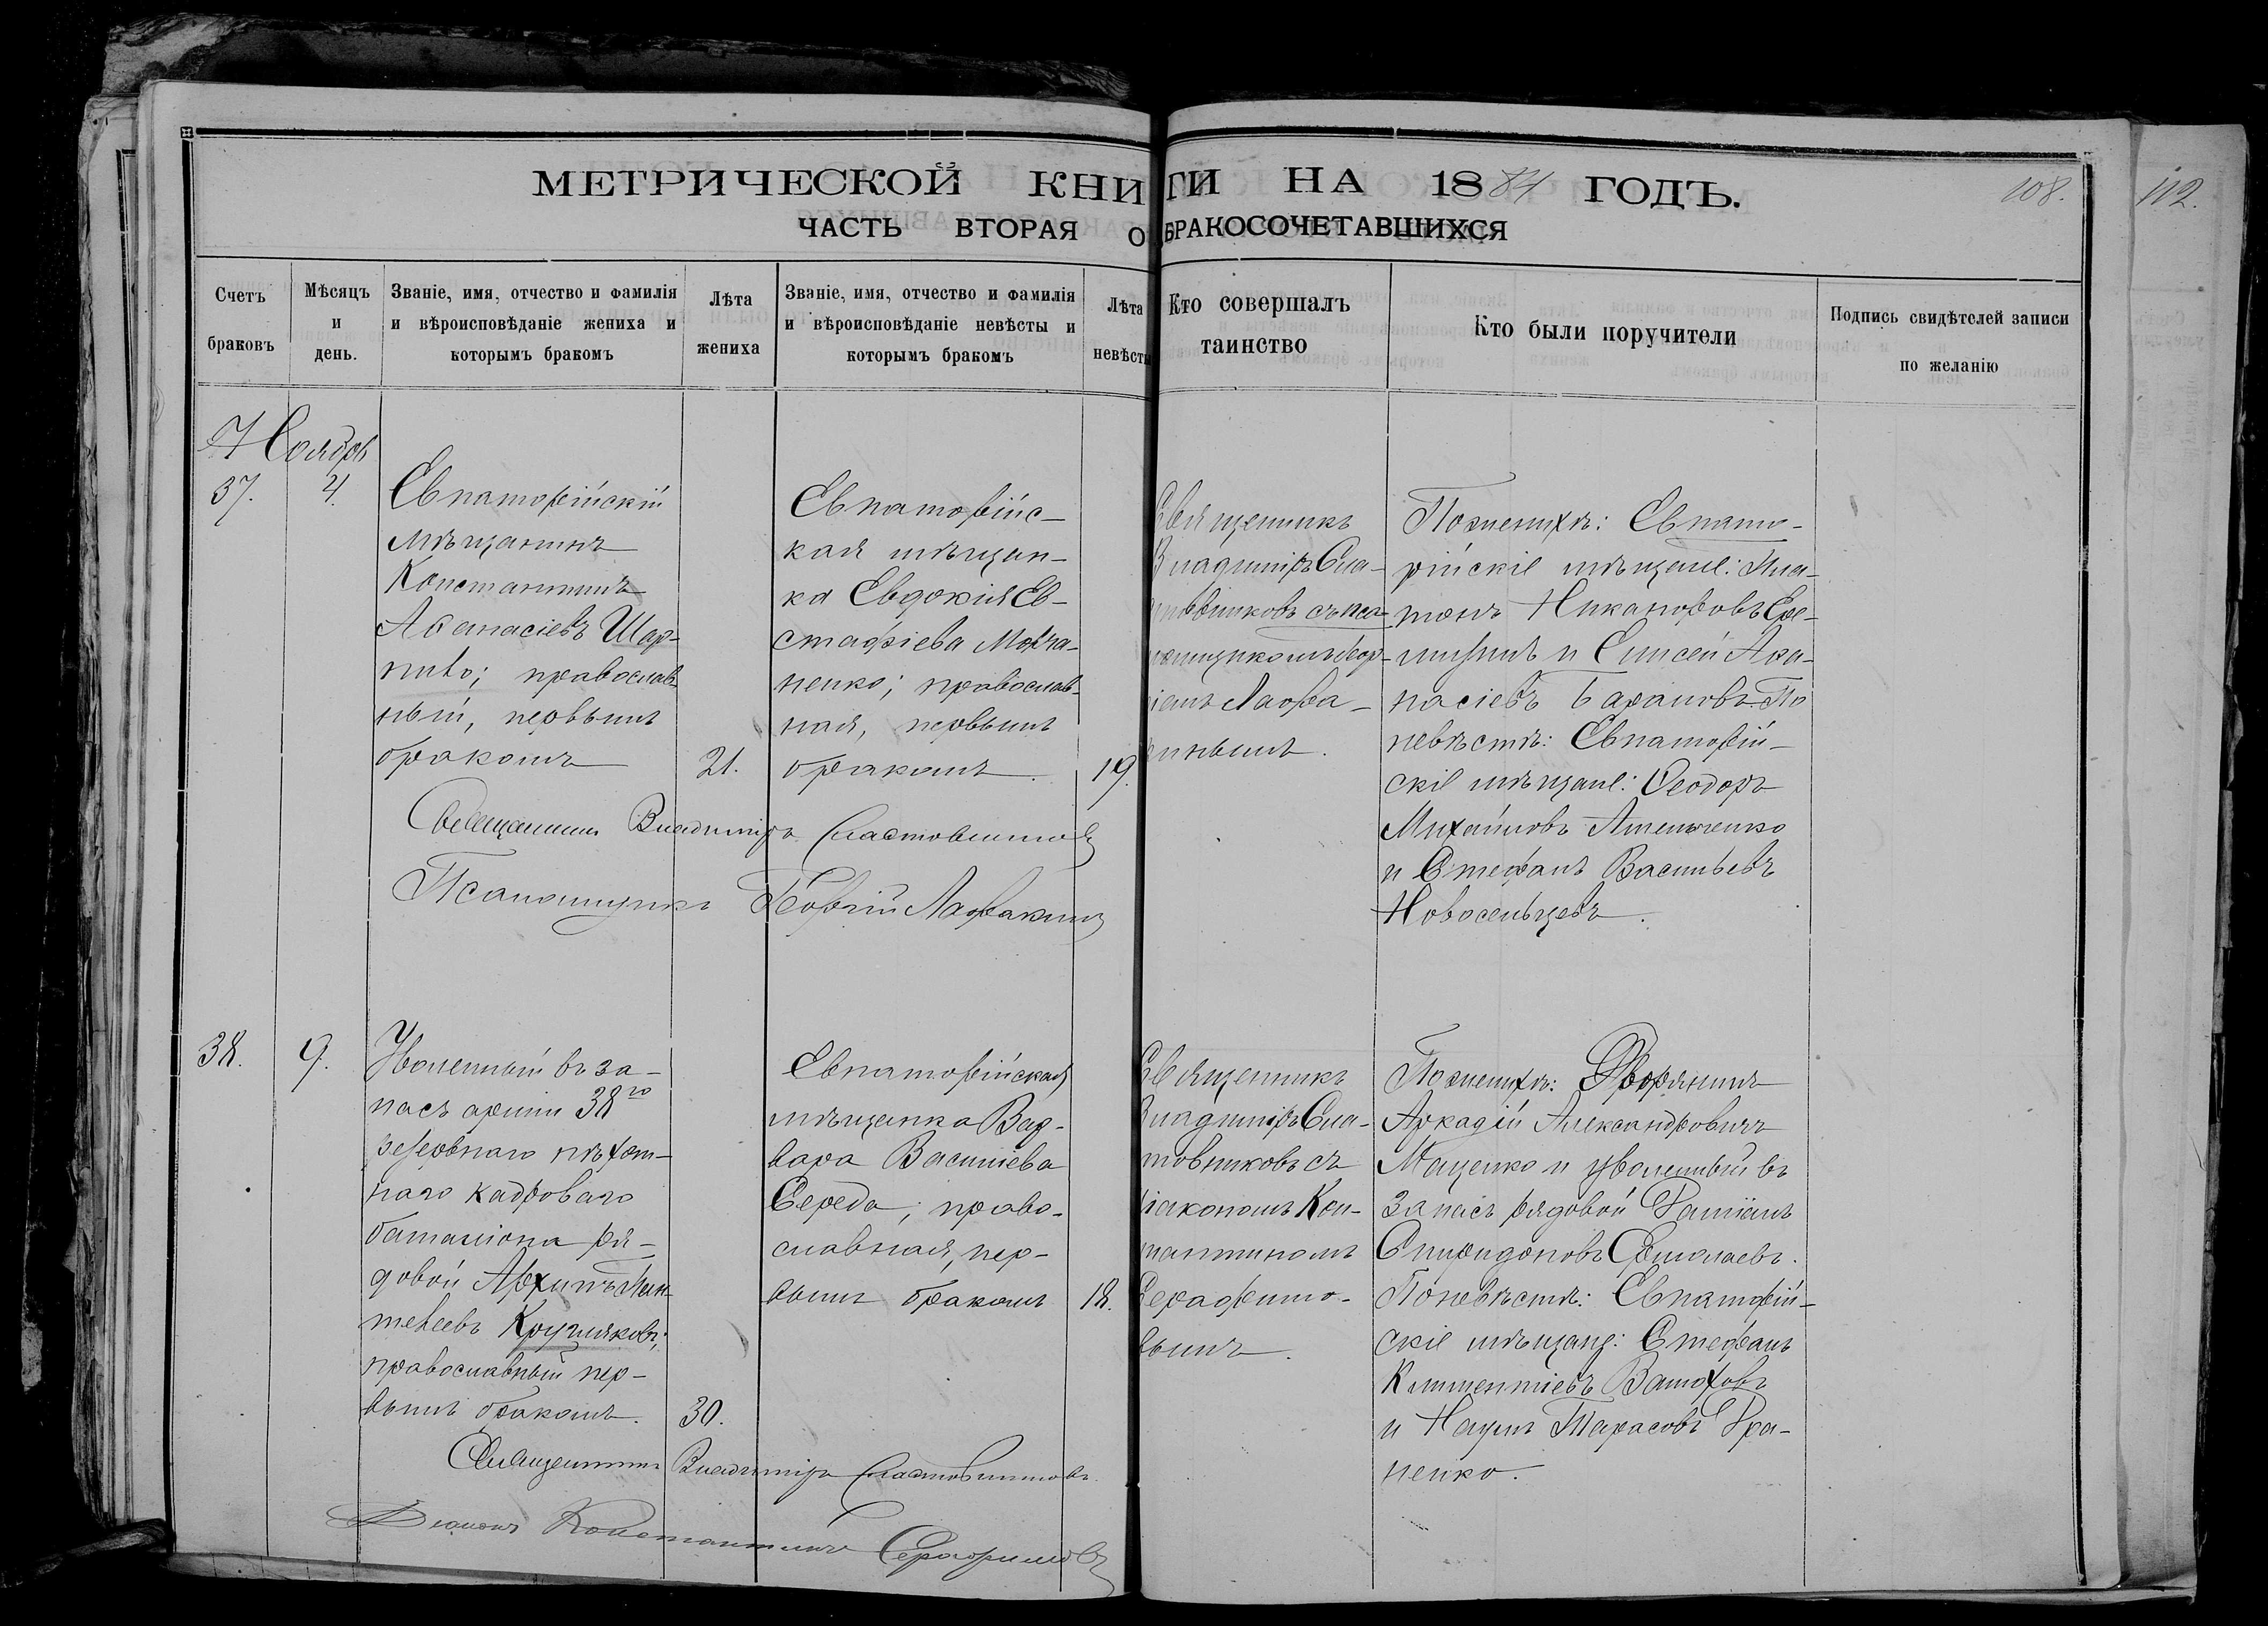 МЕТРИЧЕСКОЙ КНИГИ НА 1884 ГОДЪ.
108.
112.
ЧАСТЬ ВТОРАЯ О БРАКОСОЧЕТАВШИХСЯ
Счетъ браковъ
Мѣсяцъ и день.
Званіе, имя, отчество и фамилія
и вѣроисповѣданіе жениха и
которымъ бракомъ
Лѣта жениха
Званіе, имя, отчество и фамилія
и вѣроисповѣданіе невѣсты и
которымъ бракомъ
Лѣта невѣсты
Кто совершалъ
таинство
Кто были поручители
Подпись свидѣтелей записи
по желанію
Ноябрь
37.
4.
Евпаторійскій
мѣщанинъ
Константинъ
Аѳанасіевъ
православ-
ный, первымъ
бракомъ
21.
Евпаторійс-
кая мѣщан-
ка Евдокія Ев-
стафіева Мовча-
ненко; православ-
ная, первымъ
бракомъ.
19.
Священникъ
Владиміръ Сла-
товниковъ съ пса-
ломщикомъ Геор-
гіемъ Лавра-
кинымъ.
По женихѣ: Евпато-
рійскіе мѣщане: Пла-
тонъ Никаноровъ Ере-
и Елисей Аѳа-
насіевъ Барановъ. По
невѣстѣ: Евпаторій-
скіе мѣщане: Ѳеодоръ
Михайловъ
и Стефанъ Васильевъ
Новосельцевъ.
Священникъ Владиміръ Сластовниковъ
Псаломщикъ Георгій Лавракинъ
38.
9.
Уволенный въ за-
пасъ арміи 38го
резервнаго пѣхот-
наго кадроваго
баталіона ря-
довой Архипъ Пан-
телеевъ Кругляковъ;
православный пер-
вымъ бракомъ.
30.
Евпаторійская
мѣщанка Вар-
вара Василіева
Середа; право-
славная, пер-
вымъ бракомъ
18.
Священникъ
Владиміръ Сла-
товниковъ съ
діакономъ Кон-
стантиномъ
Серафимо-
вымъ.
По женихѣ: Дворянинъ
Аркадій Александровичъ
Маценко и уволенный въ
запасъ рядовой Даміанъ
Спиридоновъ Ермолаевъ.
По невѣстѣ: Евпаторій-
скіе мѣщане: Стефанъ
Климентіевъ
и Наумъ Тарасовъ Гра-
ненко.
Священникъ Владиміръ Сластовниковъ.
Діаконъ Константинъ Серафимовъ